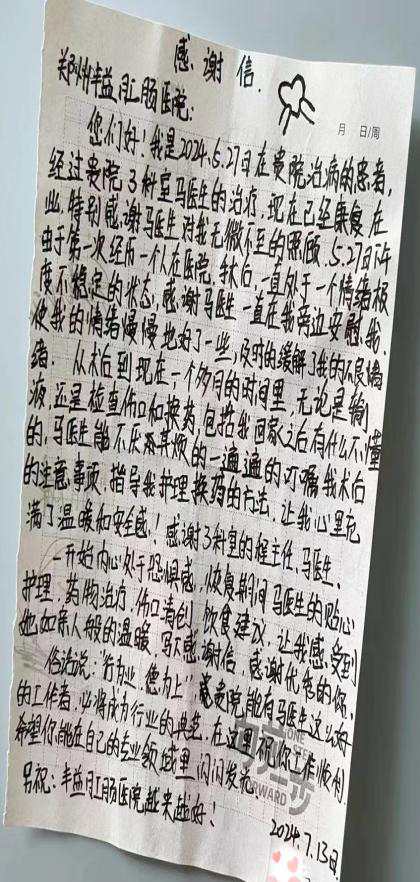 感谢信.
月 日/周
郑州丰益肛肠医院:
您们好!我是2024.5.27日在贵院治病的患者,
经过贵院3科室马医生的治疗,现在已经康复,在
此,特别感谢马医生对我无微不至的照顾,5.27日下午
由于第一次经历一个人在医院,手术后,一直处于一个情绪极
度不稳定的状态,感谢马医生一直在我旁边安慰我.
使我的情绪慢慢地好了一些,及时的缓解了我的不良情
绪. 从术后到现在一个多月的时间里,无论是输
液,还是检查伤口和换药,包括我回家之后有什么不懂
的,马医生能不厌其烦的一遍遍的叮嘱我术后
的注意事项,指导我护理换药的方法,让我心里充
满了温暖和安全感!感谢3科室的程主任、马医生、
开始内心处于恐惧感,恢复期间马医生的贴心
护理、药物治疗、伤口清创、饮食建议,让我感受到
她如亲人般的温暖,写下感谢信,感谢优秀的你.
俗话说:"行为业,德为上" 贵院能有马医生这么好
的工作者,必将成为行业的典范,在这里祝你工作顺利,
希望你能在自己的专业领域里闪闪发光.
另祝:丰益肛肠医院越来越好!
2024.7.13日.
ONE
FORWARD